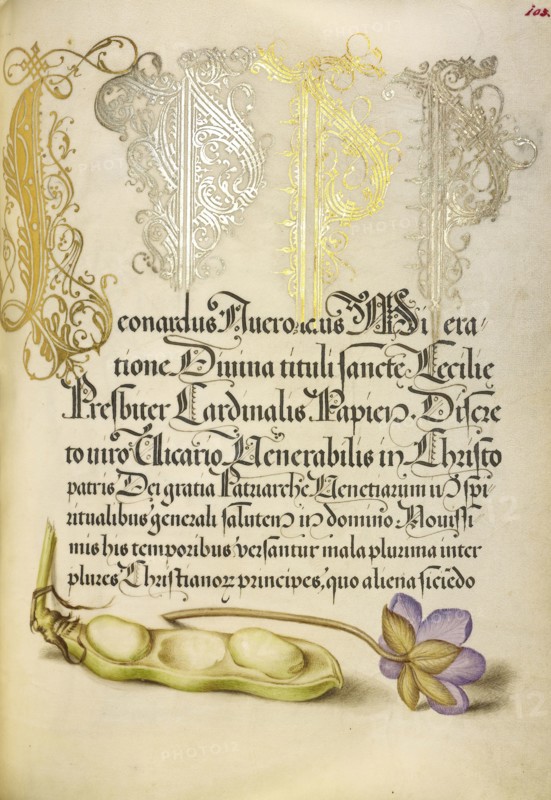 103.
L P P P
eonardus Aueroicus Miera/
tione Diuina tituli sancte Cecilie
Presbiter Cardinalis Papien. Discre
to uiro Vicario Venerabilis in Christo
patris Dei gratia Patriarche Venetiarum in spi/
ritualibus generali saluten in domino. Nouissi
mis his temporibus, versantur mala plurima inter
plures Christianoꝝ principes, quo aliena
PHOTO12